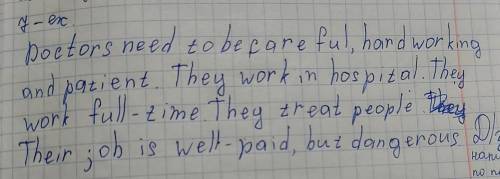 7-ex.
Doctors need to be careful, handworking
and patient. They work in hospital. They
work full-time. They treat people.
Their job is well-paid, but dangerous.